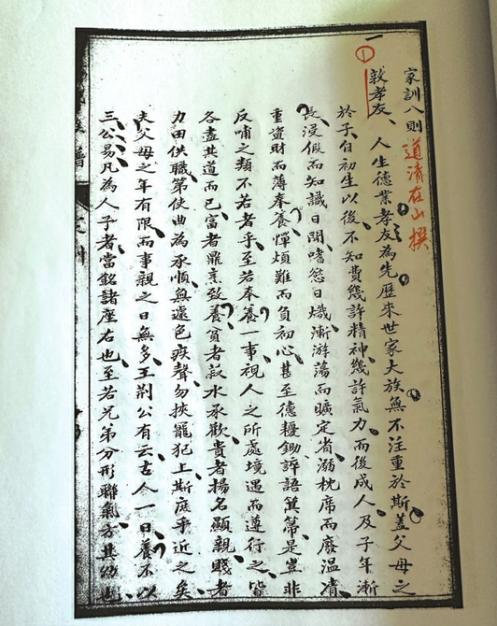 家訓八則 道清在山撰
一 ① 敦孝友、人生德業孝友為先歷來世家大族無不注重於斯蓋父母之
於子自初生以後不知費幾許精神幾許氣力而後成人及子年漸
長浸假而知識日開嗜慾日熾漸游蕩而曠定省溺枕席而廢温凊
重資財而薄奉養憚煩難而負初心甚至德耰鋤誶語箕箒是豈非
反哺之類不若者乎至若奉養一事視人之所處境遇而遵行之皆
各盡其道而已富者鼎烹致養貧者菽水承歡貴者揚名顯親賤者
力田供職第使曲為承順無遽色疾聲勿挾寵犯上斯庶乎近之矣
夫父母之年有限而事親之日無多王荆公有云古人一日養不以
三公易凡為人子者當銘諸座右也至若兄弟分形聯氣方其幼也